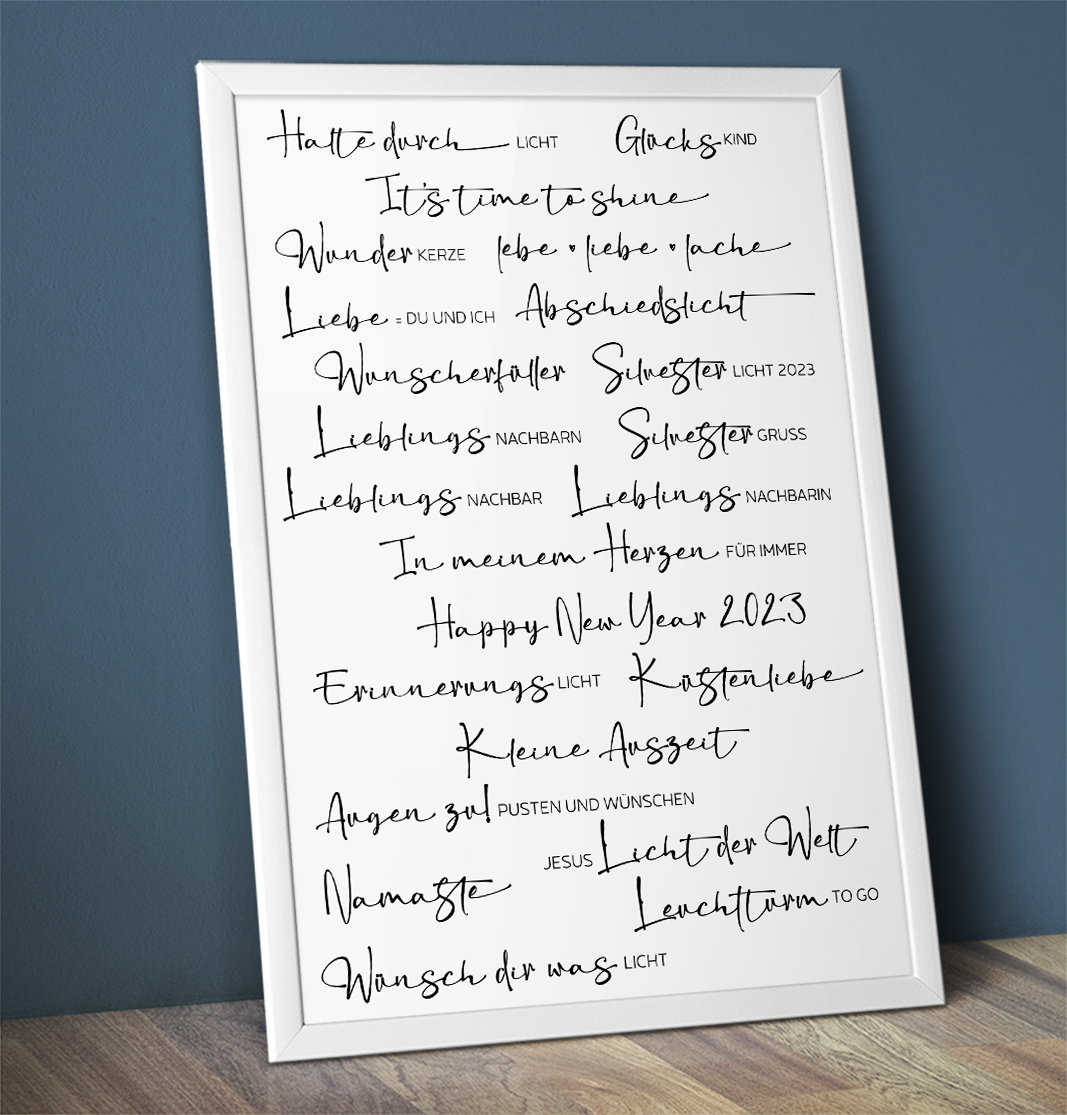 Halte durch LICHT Glücks KIND
It's time to shine
Wunder KERZE lebe • liebe • lache
Liebe = DU UND ICH Abschiedslicht
Wunscherfüller Silvester LICHT 2023
Lieblings NACHBARN Silvester GRUSS
Lieblings NACHBAR Lieblings NACHBARIN
In meinem Herzen FÜR IMMER
Happy New Year 2023
Erinnerungs LICHT Küstenliebe
Kleine Auszeit
Augen zu! PUSTEN UND WÜNSCHEN
JESUS Licht der Welt
Namaste
Leuchtturm TO GO
Wünsch dir was LICHT